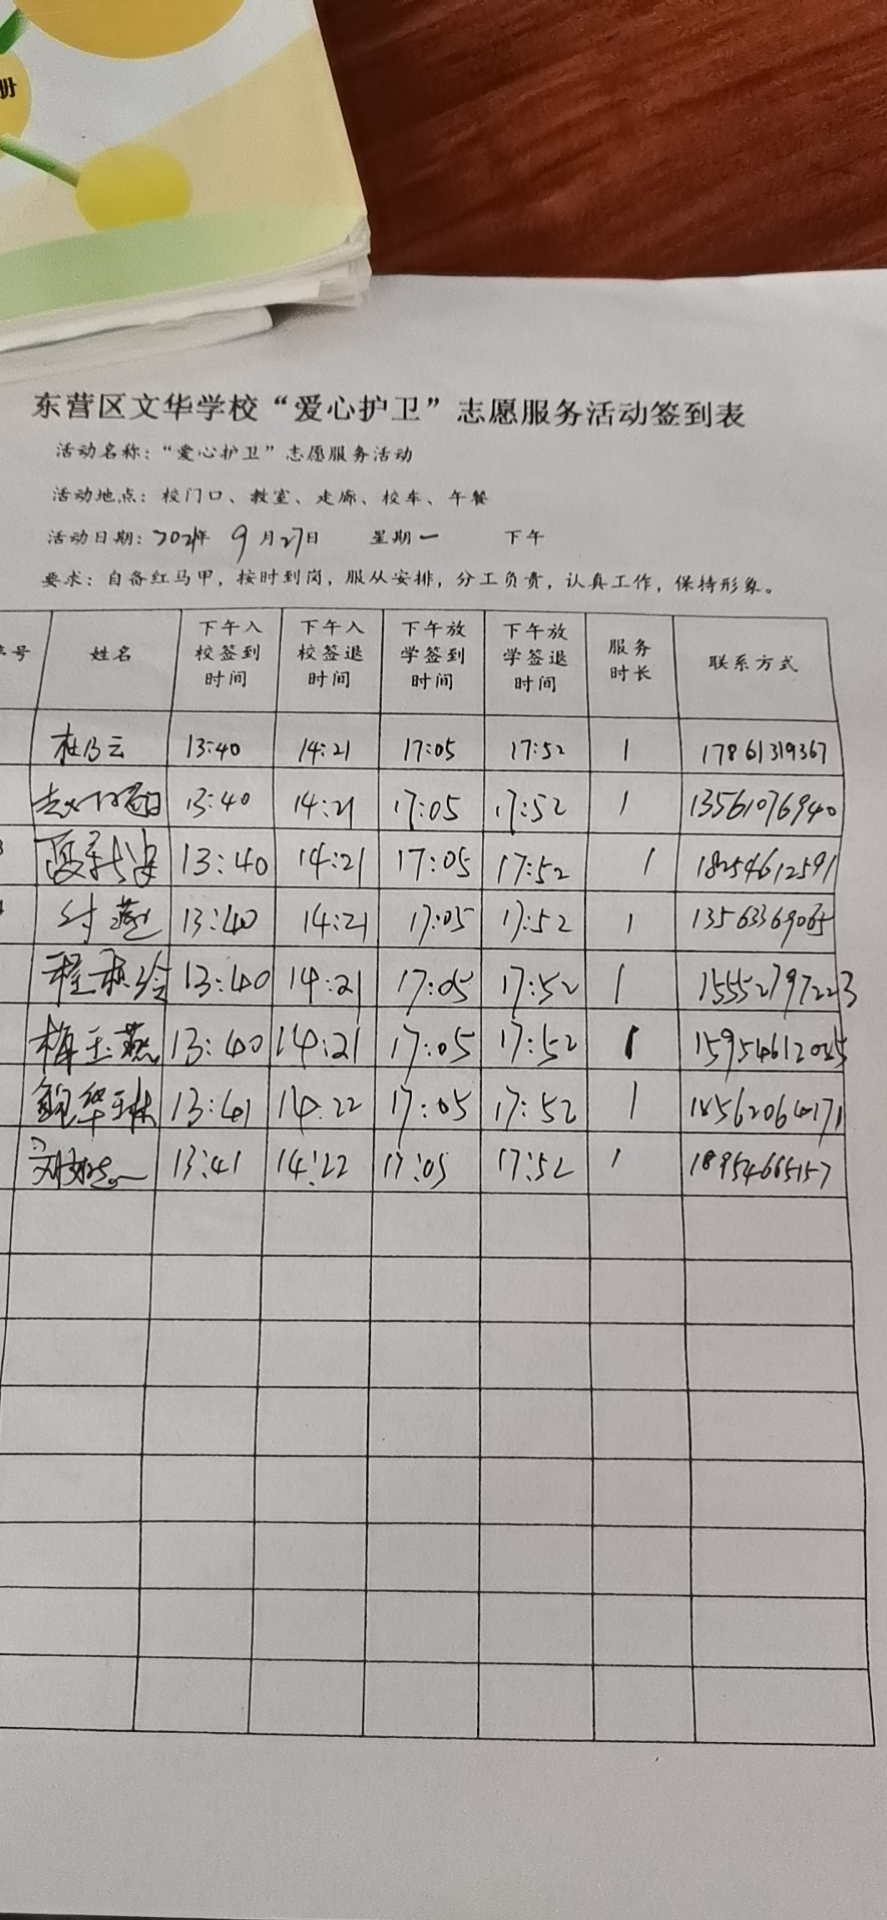 册
东营区文华学校“爱心护卫”志愿服务活动签到表
活动名称：“爱心护卫”志愿服务活动
活动地点：校门口、教室、走廊、校车、午餐
活动日期：2021年 9月27日 星期一 下午
要求：自备红马甲，按时到岗，服从安排，分工负责，认真工作，保持形象。
序号 姓名 下午入校签到时间 下午入校签退时间 下午放学签到时间 下午放学签退时间 服务时长 联系方式
杜乃云 13:40 14:21 17:05 17:52 1 17861319367
13:40 14:21 17:05 17:52 1 13561076940
3 13:40 14:21 17:05 17:52 1 18254612591
4 付燕 13:40 14:21 17:05 17:52 1 13563369065
程秋玲 13:40 14:21 17:05 17:52 1 15552797223
梅玉燕 13:40 14:21 17:05 17:52 1
鲍华琳 13:41 14:22 17:05 17:52 1 18562064171
13:41 14:22 17:05 17:52 1 18954665157